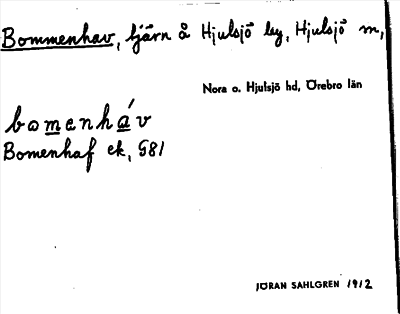 Bommenhav, tjärn å Hjulsjö by, Hjulsjö m,
Nora o. Hjulsjö hd, Örebro län
bomenháv
Bomenhaf ek, G81
JÖRAN SAHLGREN 1912